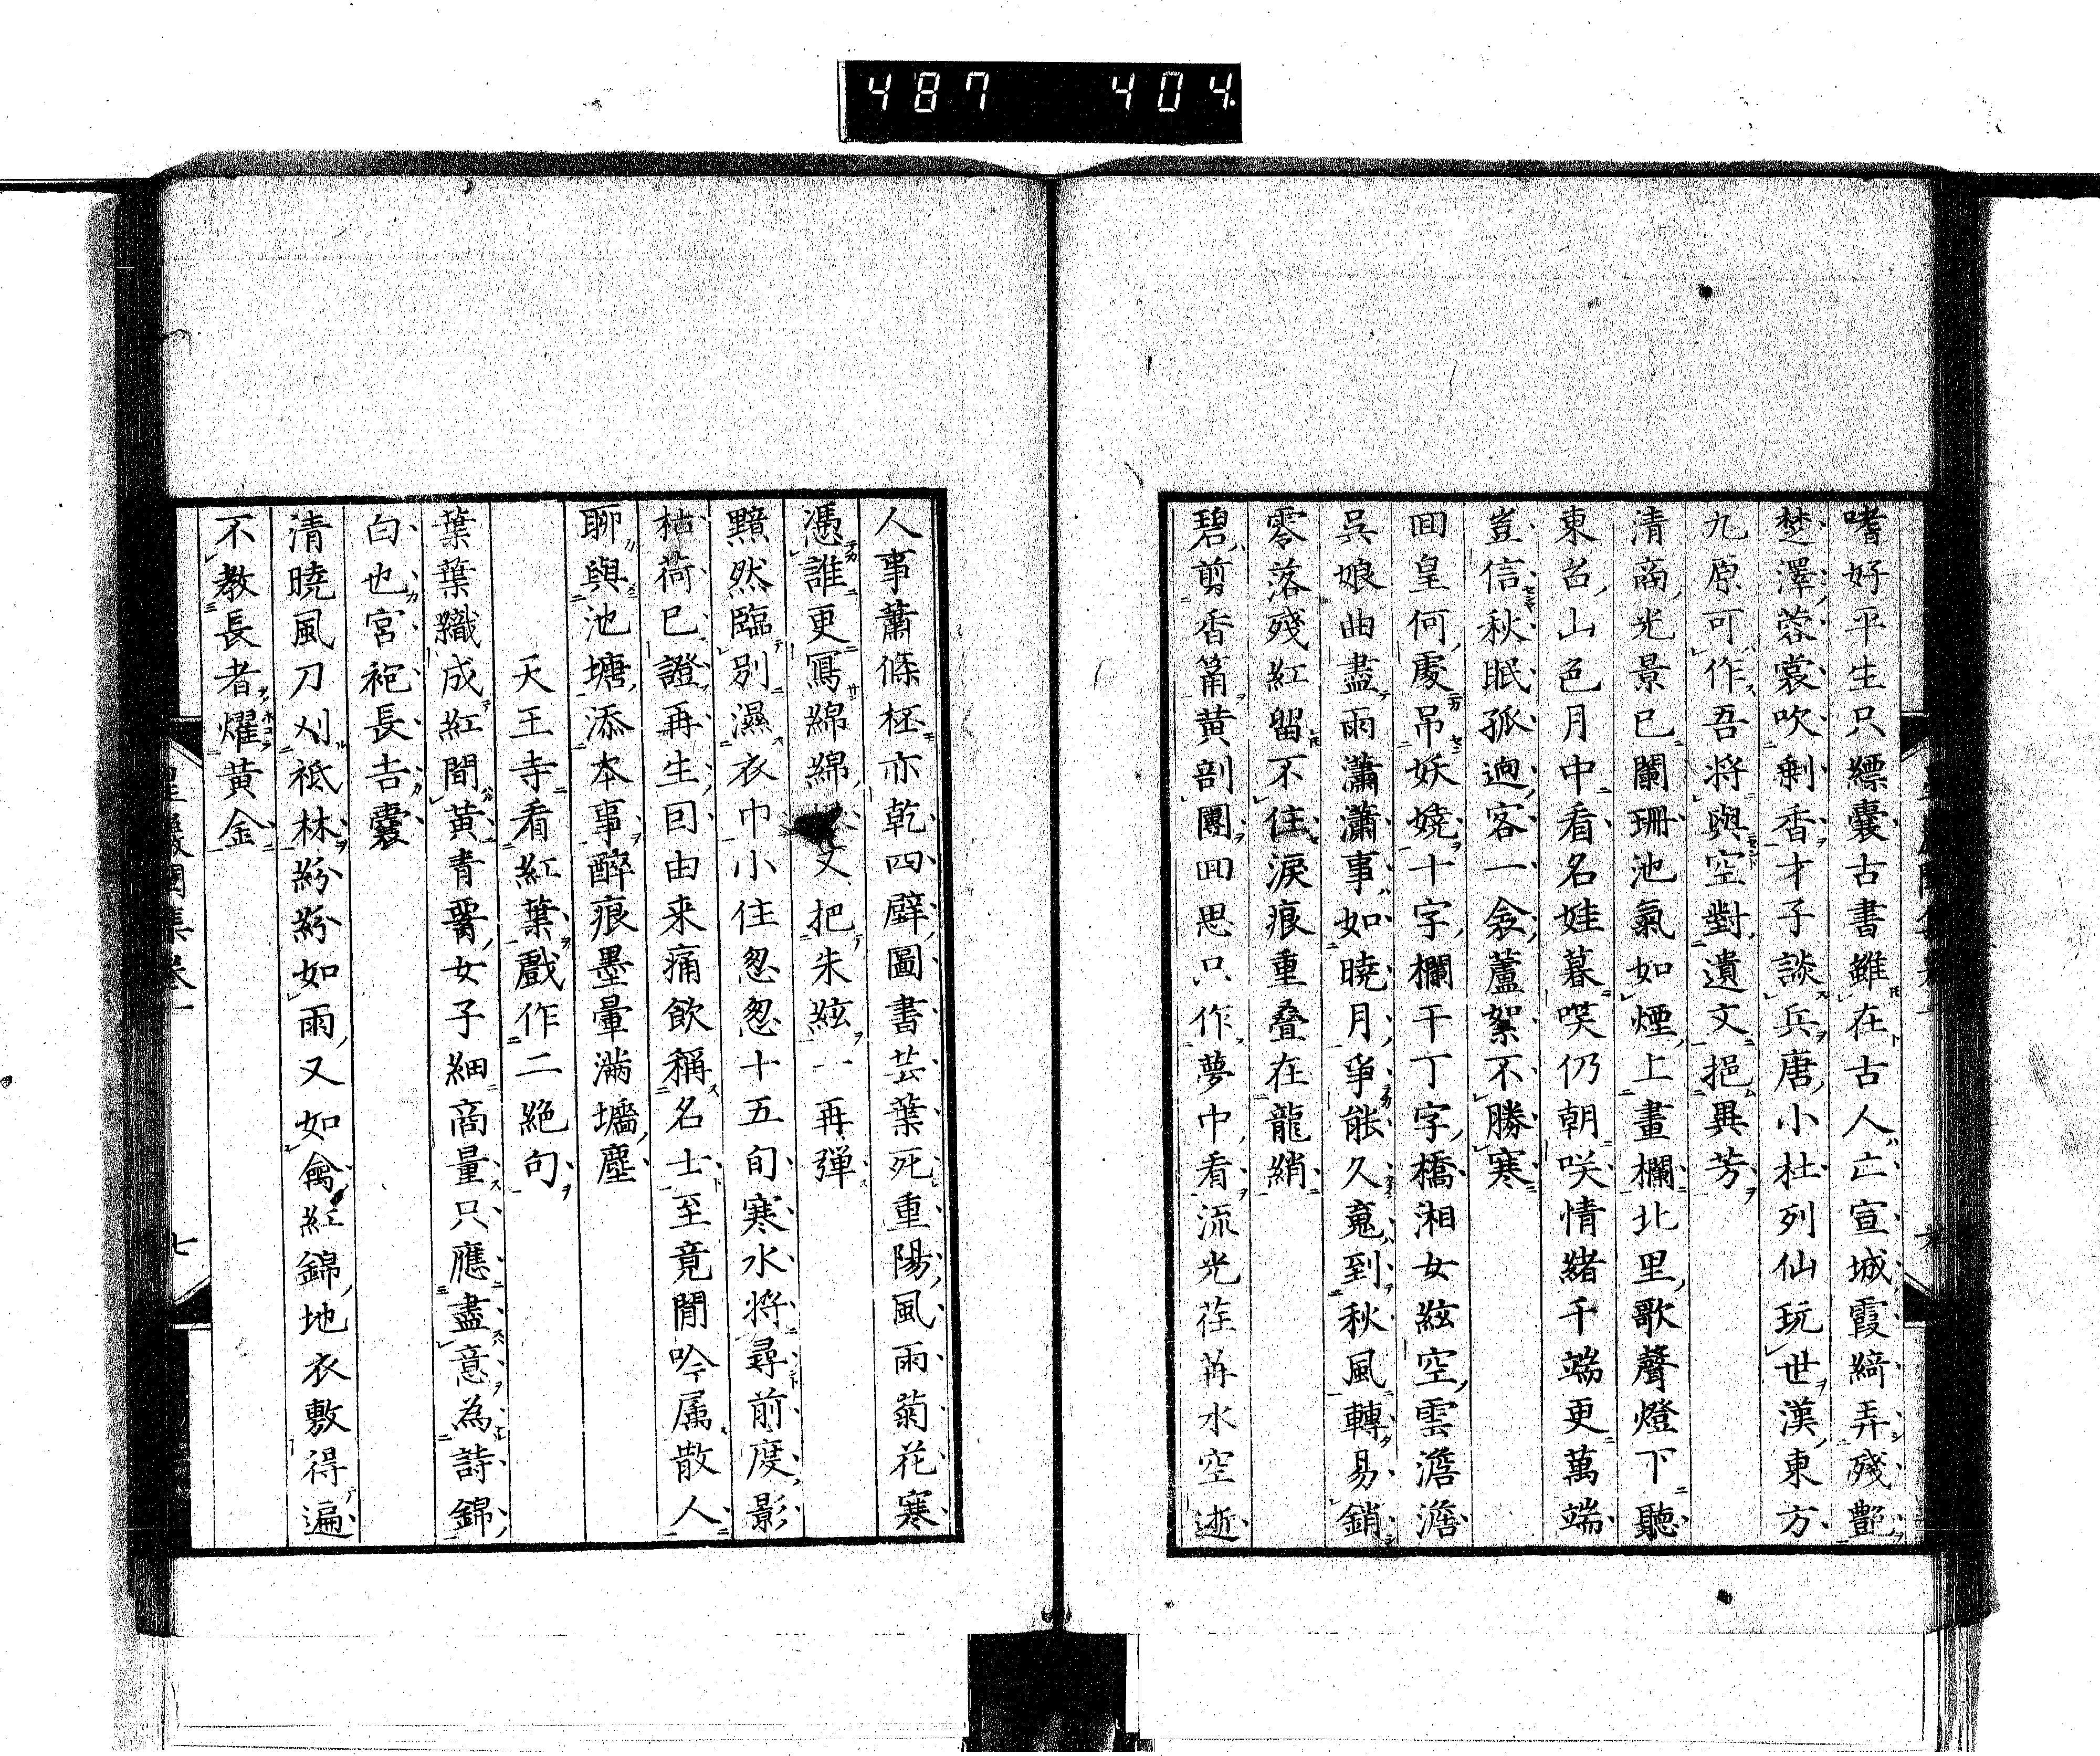 487 404
嗜好平生只縹囊古書雖在古人亡宣城霞綺弄殘艷
楚澤蓉裳吹剩香才子談兵唐小杜列仙玩世漢東方
九原可作吾將與空對遺文挹異芳
清商光景已闌珊池氣如煙上畫欄北里歌聲燈下聽
東台山色月中看名娃暮哭仍朝咲情緒千端更萬端
豈信秋眠孤逈客一衾蘆絮不勝寒
回皇何處吊妖嬈十字欄干丁字橋湘女絃空雲澹澹
呉娘曲盡雨瀟瀟事如曉月爭能久竟到秋風轉易銷
零落殘紅留不住淚痕重叠在龍綃
碧剪香筩黃剖團回思只作夢中看流光荏苒水空逝
人事蕭條柸亦乾四壁圖書芸葉死重陽風雨菊花寒
憑誰更寫綿綿又把朱絃一再弾
黯然臨別濕衣巾小住怱怱十五旬寒水將尋前度影
枯荷已證再生因由来痛飲稱名士至竟閒吟属散人
聊與池塘添本事醉痕墨暈満墻塵
天王寺看紅葉戲作二絶句
葉葉織成紅間黃青霄女子細商量只應盡意為詩錦
白也宮袍長吉囊
清曉風刀刈祗林紛紛如雨又如禽紅錦地衣敷得遍
不教長者燿黃金
七